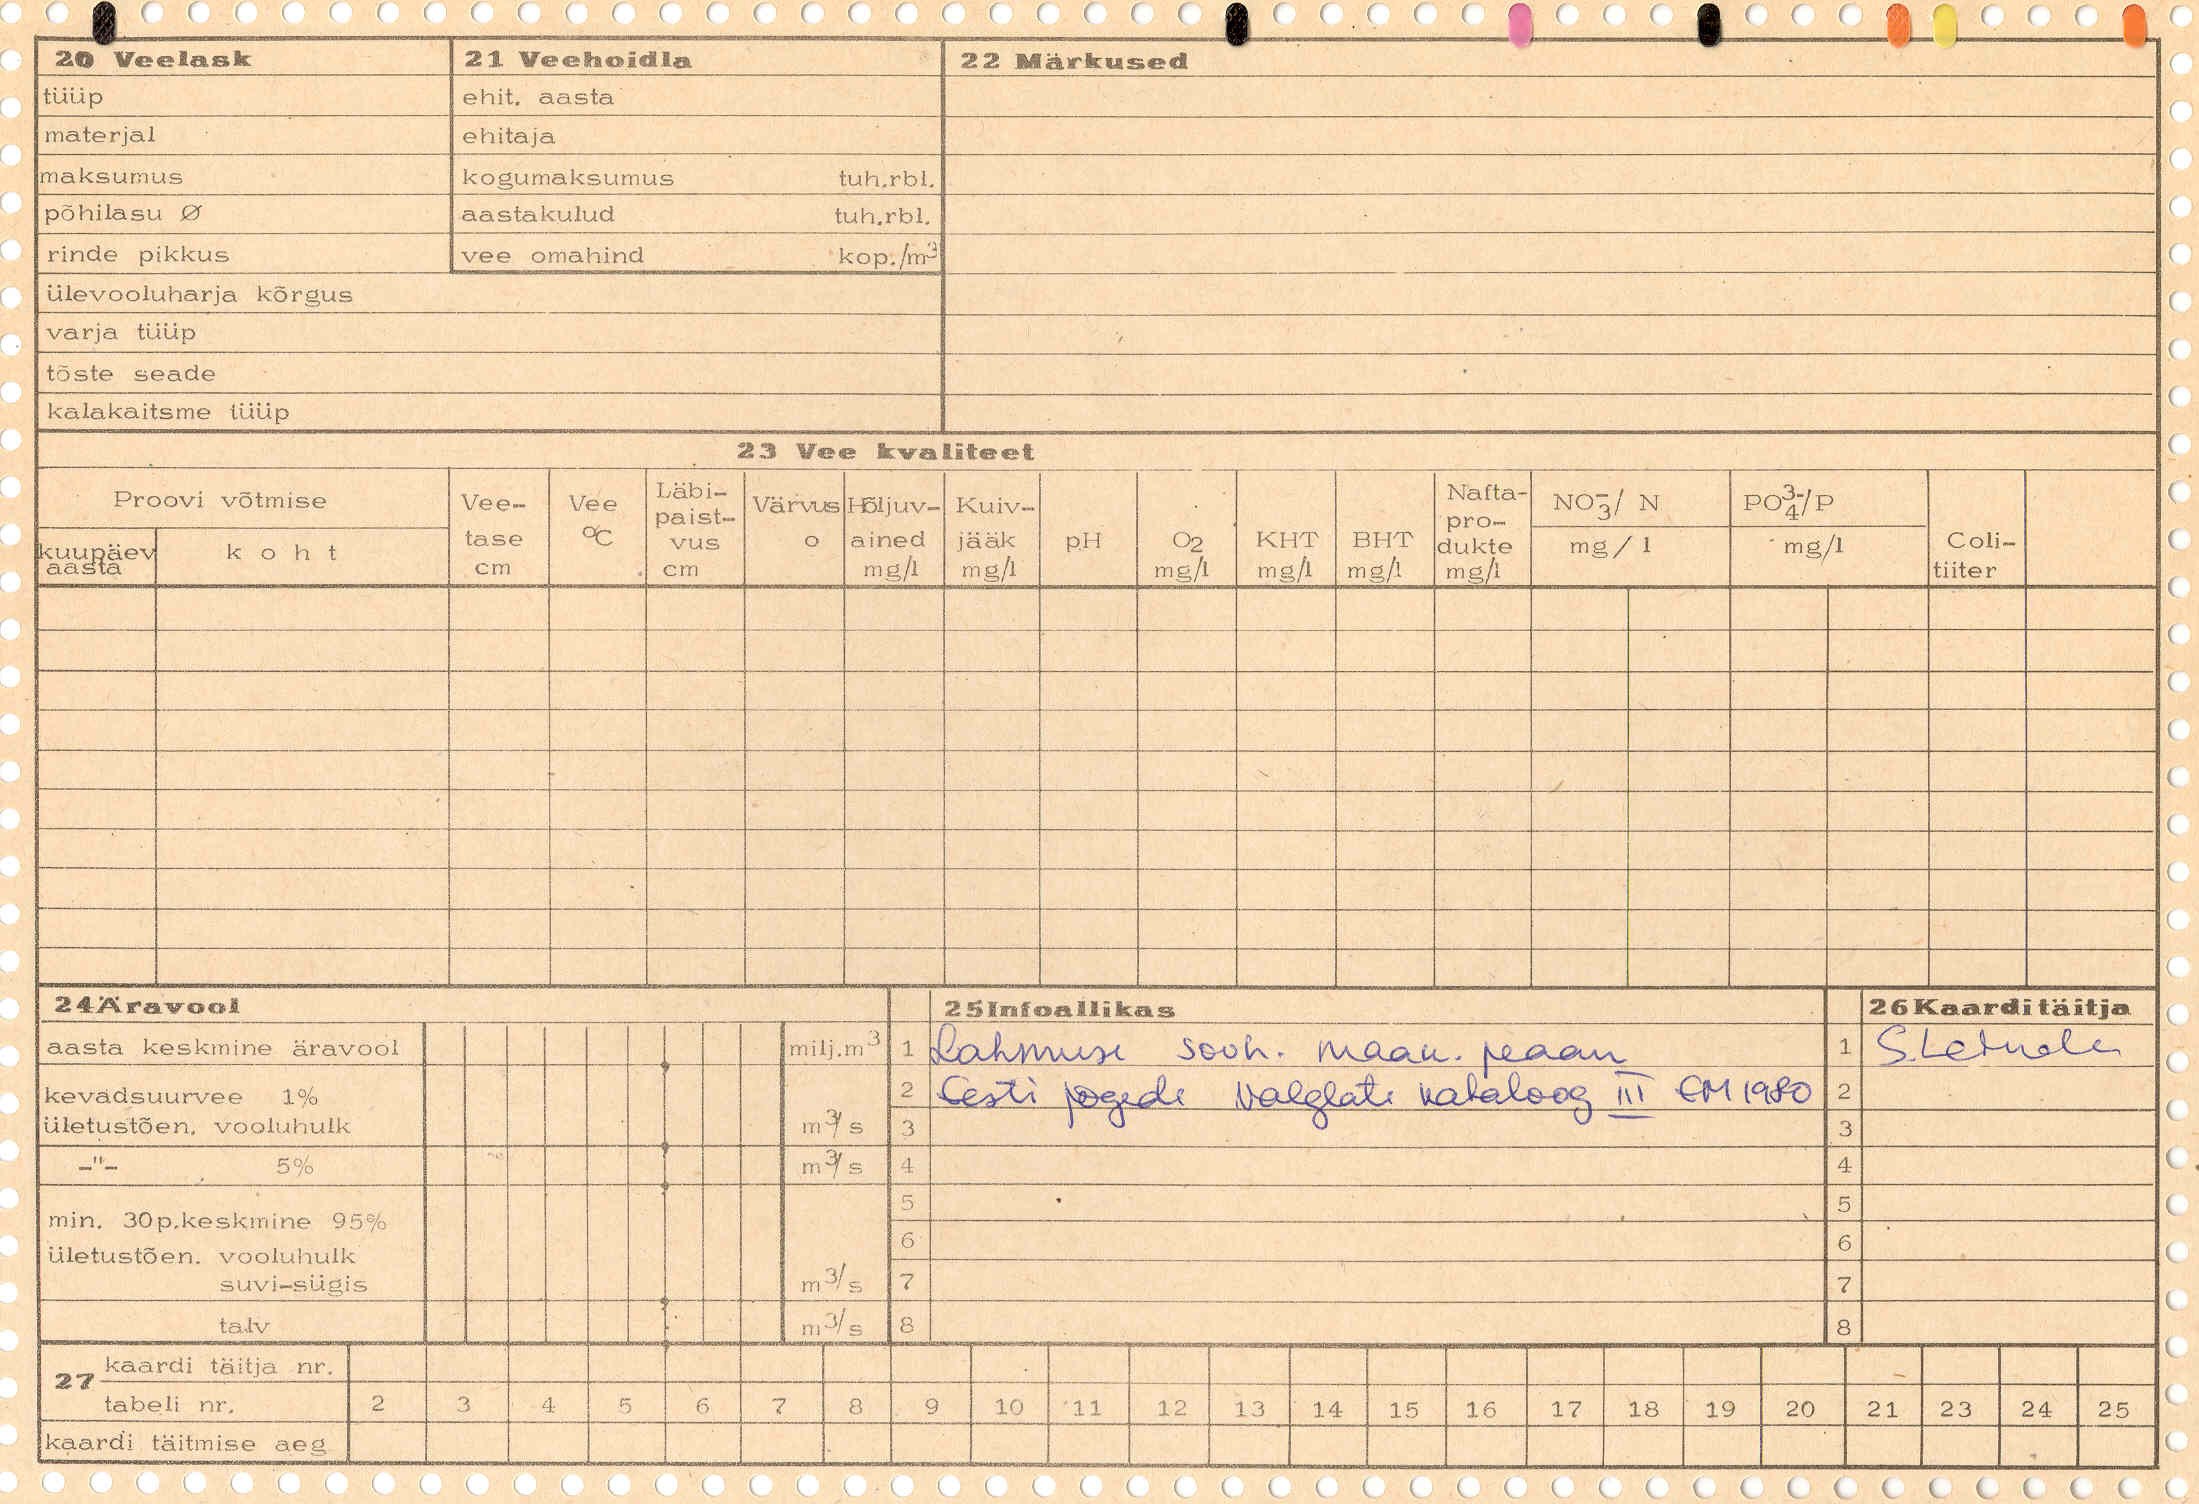 20 Veelask
tüüp
materjal
maksumus
põhilasu Ø
rinde pikkus
ülevooluharja kõrgus
varja tüüp
tõste seade
kalakaitsme tüüp
21 Veehoidla
ehit. aasta
ehitaja
kogumaksumus tuh.rbl.
aastakulud tuh.rbl.
vee omahind kop./m³
22 Märkused
23 Vee kvaliteet
Proovi võtmise
kuupäev
aasta
koht
Vee-
tase
cm
Vee
°C
Läbi-
paist-
vus
cm
Värvus
o
Hõljuv-
ained
mg/l
Kuiv-
jääk
mg/l
pH
O₂
mg/l
KHT
mg/l
BHT
mg/l
Nafta-
pro-
dukte
mg/l
NO₃⁻/ N
mg/l
PO₄³⁻/P
mg/l
Coli-
tiiter
24 Äravool
aasta keskmine äravool milj.m³
kevadsuurvee 1%
ületustõen. vooluhulk m³/s
-"- 5% m³/s
min. 30p.keskmine 95%
ületustõen. vooluhulk
suvi-sügis m³/s
talv m³/s
25 Infoallikas
1 Lahmuse sovh. maak. peaau
2 Eesti jõgede valglate kataloog III EM 1980
3
4
5
6
7
8
26 Kaardi täitja
1
2
3
4
5
6
7
8
27
kaardi täitja nr.
tabeli nr. 2 3 4 5 6 7 8 9 10 11 12 13 14 15 16 17 18 19 20 21 23 24 25
kaardi täitmise aeg